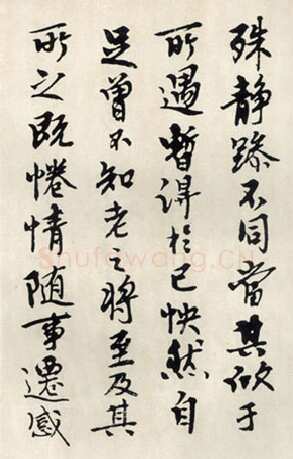 殊静躁不同當其欣于
所遇暫得於己怏然自
足曾不知老之將至及其
所之既惓情随事遷感
Shufawang.cn